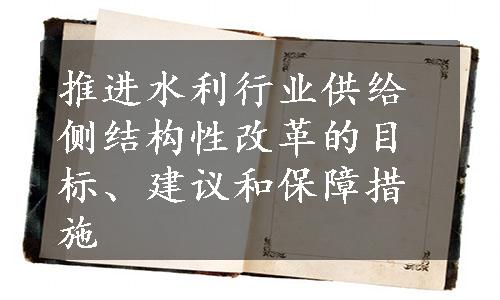 推进水利行业供给
侧结构性改革的目
标、建议和保障措
施